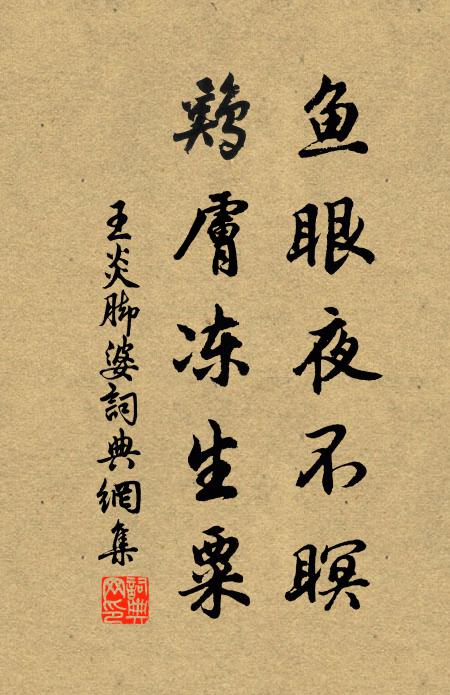 鱼眼夜不瞑
鷄膚冻生粟
王炎脚婆詞典網集
詞典网印